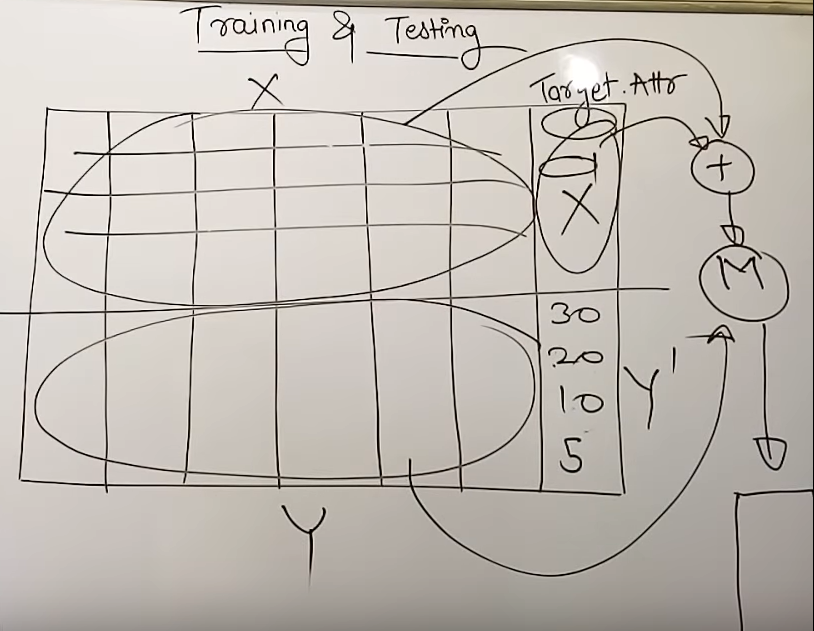 Training & Testing
X
Target.Attr
+
X
M
30
20
Y'
10
5
Y